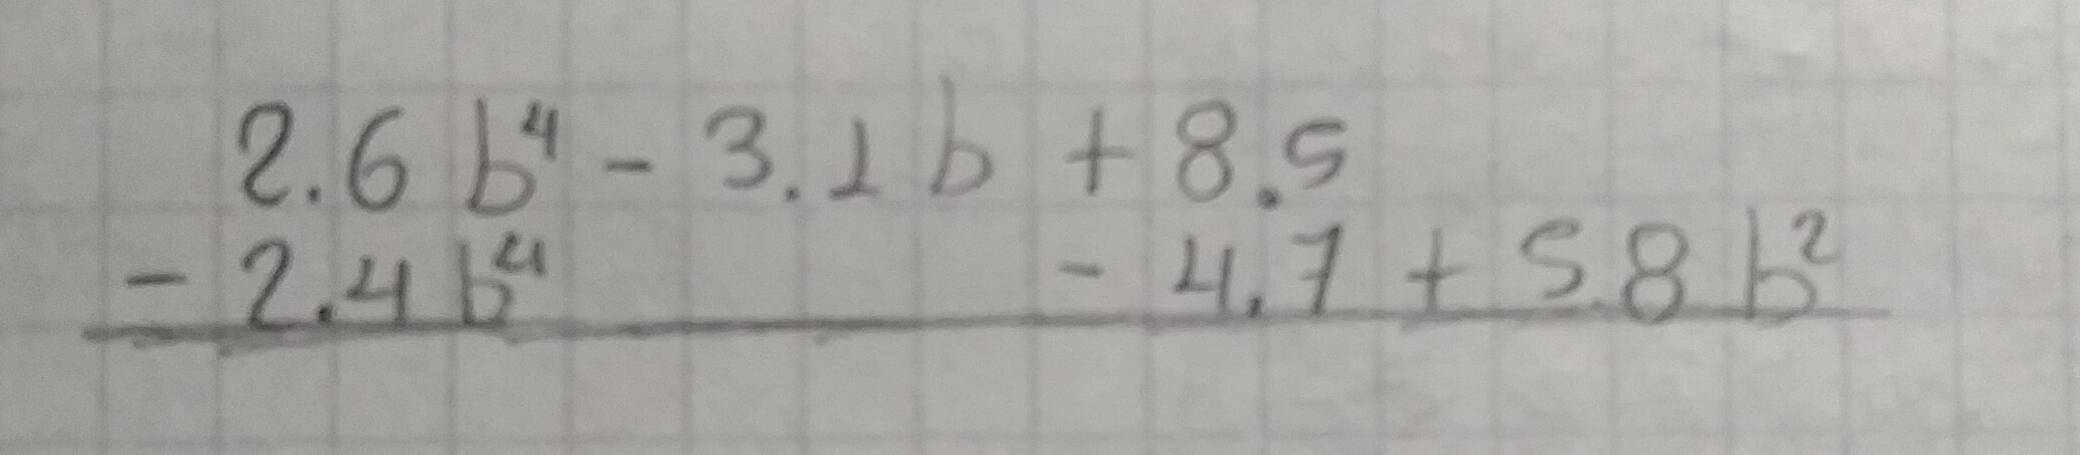 2.6 b⁴ - 3.1 b + 8.5
- 2.4 b⁴ - 4.7 + 5.8 b²